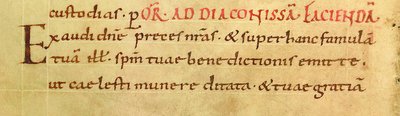 custodias. p ŌR̄ AD DIACONISSĀ FACIENDĀ
Exaudi dn̄e preces nr̄as. & super hanc famulā
tuā ill̄. sp̄m tuae benedictionis emitte.
ut caelesti munere ditata. & tuae gratiā